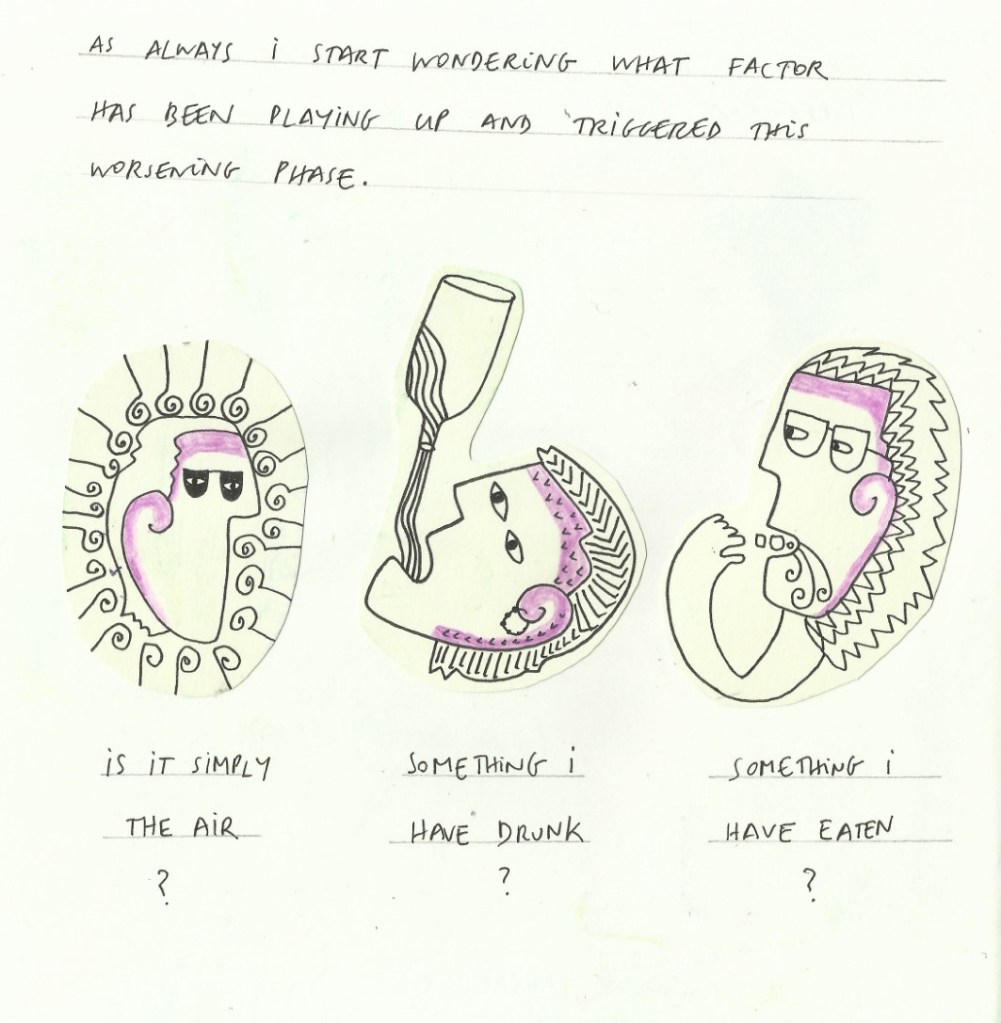 AS ALWAYS i START WONDERiNG WHAT FACTOR
HAS BEEN PLAYiNG UP AND TRIGGERED THiS
WORSENiNG PHASE.
iS iT SiMPLY
THE AiR
?
SOMETHiNG i
HAVE DRUNK
?
SOMETHiNG i
HAVE EATEN
?